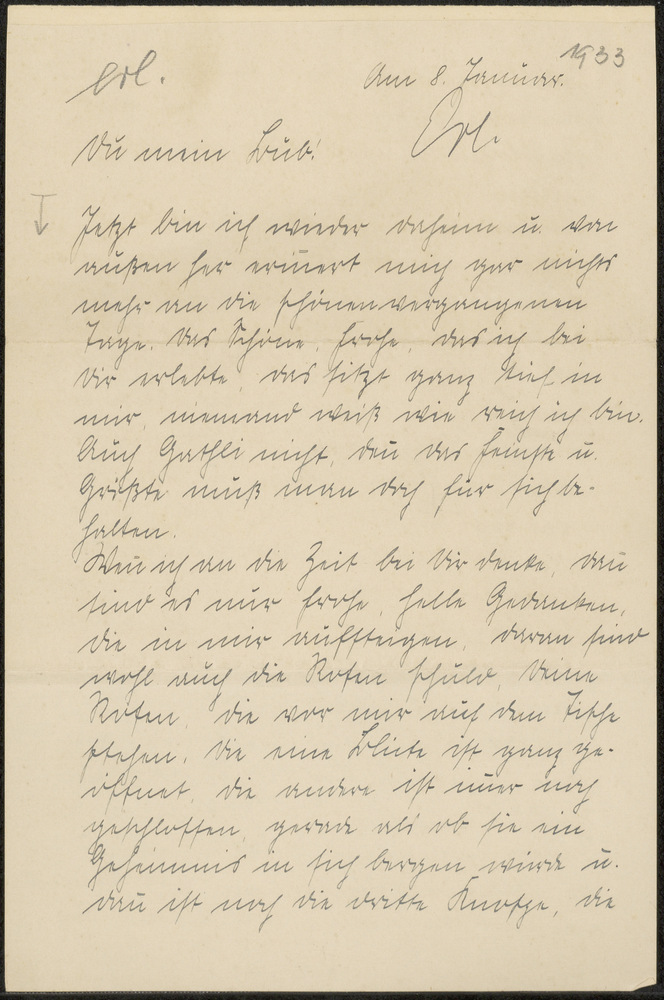 1933
erl.
Am 8. Januar.
Erl.
Du mein Bub!
Jetzt bin ich wieder daheim u. von
außen her erin̅ert mich gar nichts
mehr an die schönen vergangenen
Tage. Das Schöne, Frohe, das ich bei
Dir erlebte, das sitzt ganz tief in
mir, niemand weiß wie reich ich bin.
Auch Gathli nicht, den̅ das Feinste u.
Größte muß man doch für sich be-
halten.
Wen̅ ich an die Zeit bei Dir denke, dan̅
sind es nur frohe, helle Gedanken,
die in mir aufsteigen, daran sind
wohl auch die Rosen schuld, Deine
Rosen, die vor mir auf dem Tische
stehen. Die eine Blüte ist ganz ge-
öffnet, die andere ist im̅er noch
geschlossen, gerade als ob sie ein
Geheimnis in sich bergen würde u.
dan̅ ist noch die dritte Knospe, die